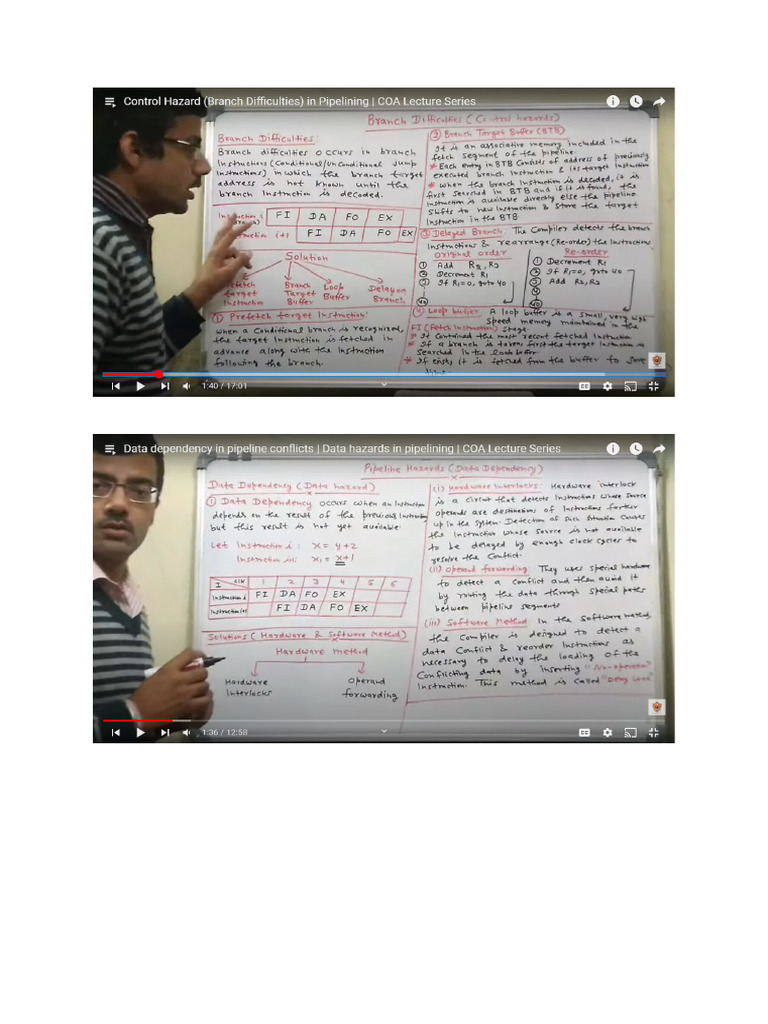 Control Hazard (Branch Difficulties) in Pipelining | COA Lecture Series
Branch Difficulties (Control hazards)
Branch Difficulties:
Branch difficulties occurs in branch
Instructions (Conditional/unConditional Jump
Instructions) in which the branch target
address is not known until the
branch Instruction is decoded.
Instruction i FI DA FO EX
Instruction i+1 FI DA FO EX
Solution
Prefetch Branch Loop Delayed
target Target Buffer Branch
Instruction Buffer
① Prefetch target Instruction:
When a Conditional branch is recognized,
the target Instruction is fetched in
advance along with the Instruction
following the branch.
② Branch Target Buffer (BTB)
It is an associative memory included in the
fetch segment of the pipeline
* Each entry in BTB consists of address of previously
executed branch Instruction & its target Instruction
* When the branch Instruction is decoded, it is
first searched in BTB and if it is found, the
instruction is available directly else the pipeline
shifts to new Instruction & store the target
Instruction in the BTB.
③ Delayed Branch: The Compiler detects the branch
Instructions & rearrange (Re-order) the Instructions
Original order Re-order
① Add R2, R3 ① Decrement R1
② Decrement R1 ② If R1=0, goto 40
③ If R1=0, goto 40 ③ Add R2, R3
④
40 40
④ Loop buffer: A loop buffer is a small, very high
speed memory maintained in the
FI (Fetch Instruction) stage.
* It contained the most recent fetched Instruction
* If a branch is taken, first the target Instruction is
searched in the loop buffer
* If exist, it is fetched from the buffer to save
time.
1:40 / 17:01
Data dependency in pipeline conflicts | Data hazards in pipelining | COA Lecture Series
Pipeline Hazards (Data Dependency)
Data Dependency (Data hazard)
① Data Dependency occurs when an Instruction
depends on the result of the previous Instruction
but this result is not yet available.
Let Instruction i: x = y+2
Instruction i+1: x1 = x+1
I clk 1 2 3 4 5 6
Instruction i FI DA FO EX
Instruction i+1 FI DA FO EX
Solutions (Hardware & Software Method)
Hardware Method
Hardware Operand
Interlocks forwarding
(i) Hardware Interlocks: Hardware interlock
is a circuit that detects Instructions whose source
operands are destinations of Instructions farther
up in the System. Detection of such situation causes
the Instruction whose source is not available
to be delayed by enough clock cycles to
resolve the Conflict.
(ii) Operand forwarding: They uses special hardware
to detect a conflict and then avoid it
by routing the data through special paths
between pipeline segments
(iii) Software Method In the Software method,
the Compiler is designed to detect a
data Conflict & reorder Instructions as
necessary to delay the loading of the
Conflicting data by inserting "No-operation"
Instruction. This method is called "Delay Load"
1:36 / 12:58